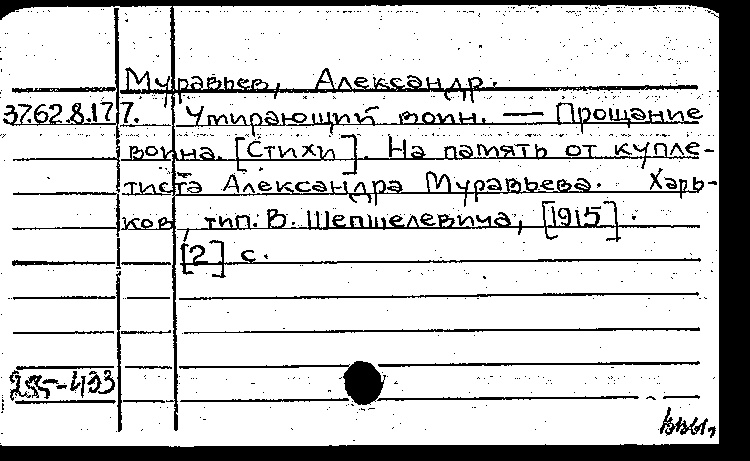 Муравьев, Александр.
37.62.8.177. Умирающий воин. — Прощание
воина. [Стихи]. На память от купле-
тиста Александра Муравьева. Харь-
ков, тип. В. Шепшелевича, [1915].
[2] с.